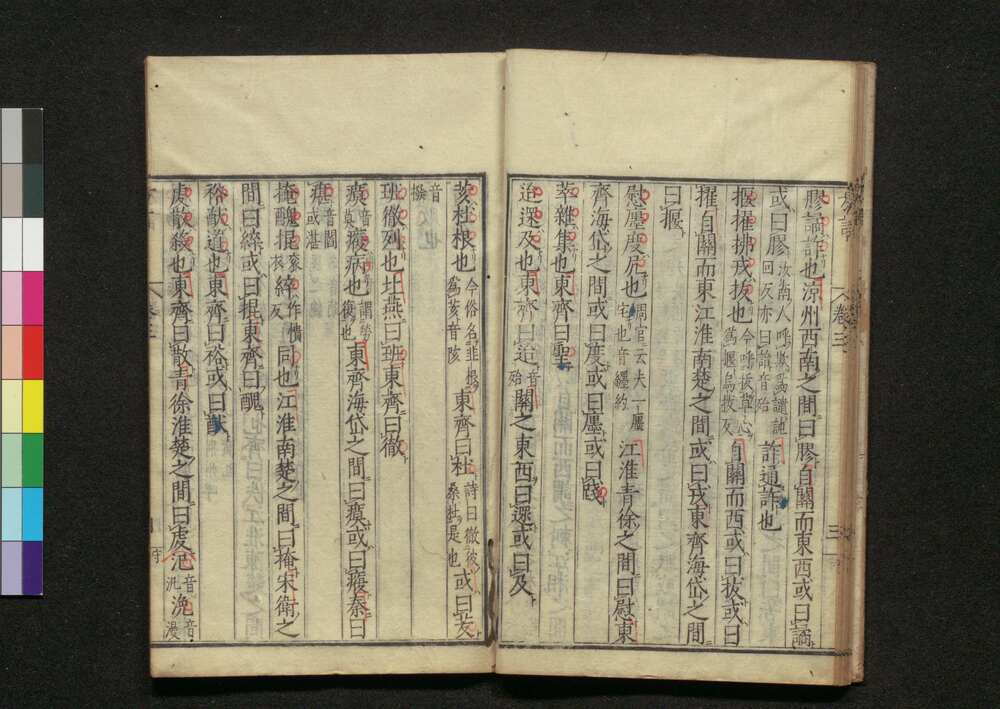 方言 卷三 三
膠譎詐也涼州西南之間曰膠自關而東西或曰譎
或曰膠汝南人呼欺為譴訑回反亦曰詒音殆詐通詐也
揠擢拂戎拔也今呼拔草心為揠烏拔反自關而西或曰拔或曰
擢自關而東江淮南楚之間或曰戎東齊海岱之間
曰揠
慰廛度凥也周官云夫一廛宅也音纏約江淮青徐之間曰慰東
齊海岱之間或曰度或曰廛或曰踐
萃雜集也東齊曰聖
迨遝及也東齊曰迨音殆關之東西曰遝或曰及
荄杜根也今俗名韭根為荄音陔東齊曰杜詩曰徹彼桑杜是也或曰茇
音撥
班徹列也北燕曰班東齊曰徹
瘼音莫癁病也謂勞復也東齊海岱之間曰瘼或曰癁秦曰
瘎音閻或湛
掩醜掍衮衣綷作憒反同也江淮南楚之間曰掩宋衛之
間曰綷或曰掍東齊曰醜
裕猷道也東齊曰裕或曰猷
虔散殺也東齊曰散青徐淮楚之間曰虔氾音汎浼音漫